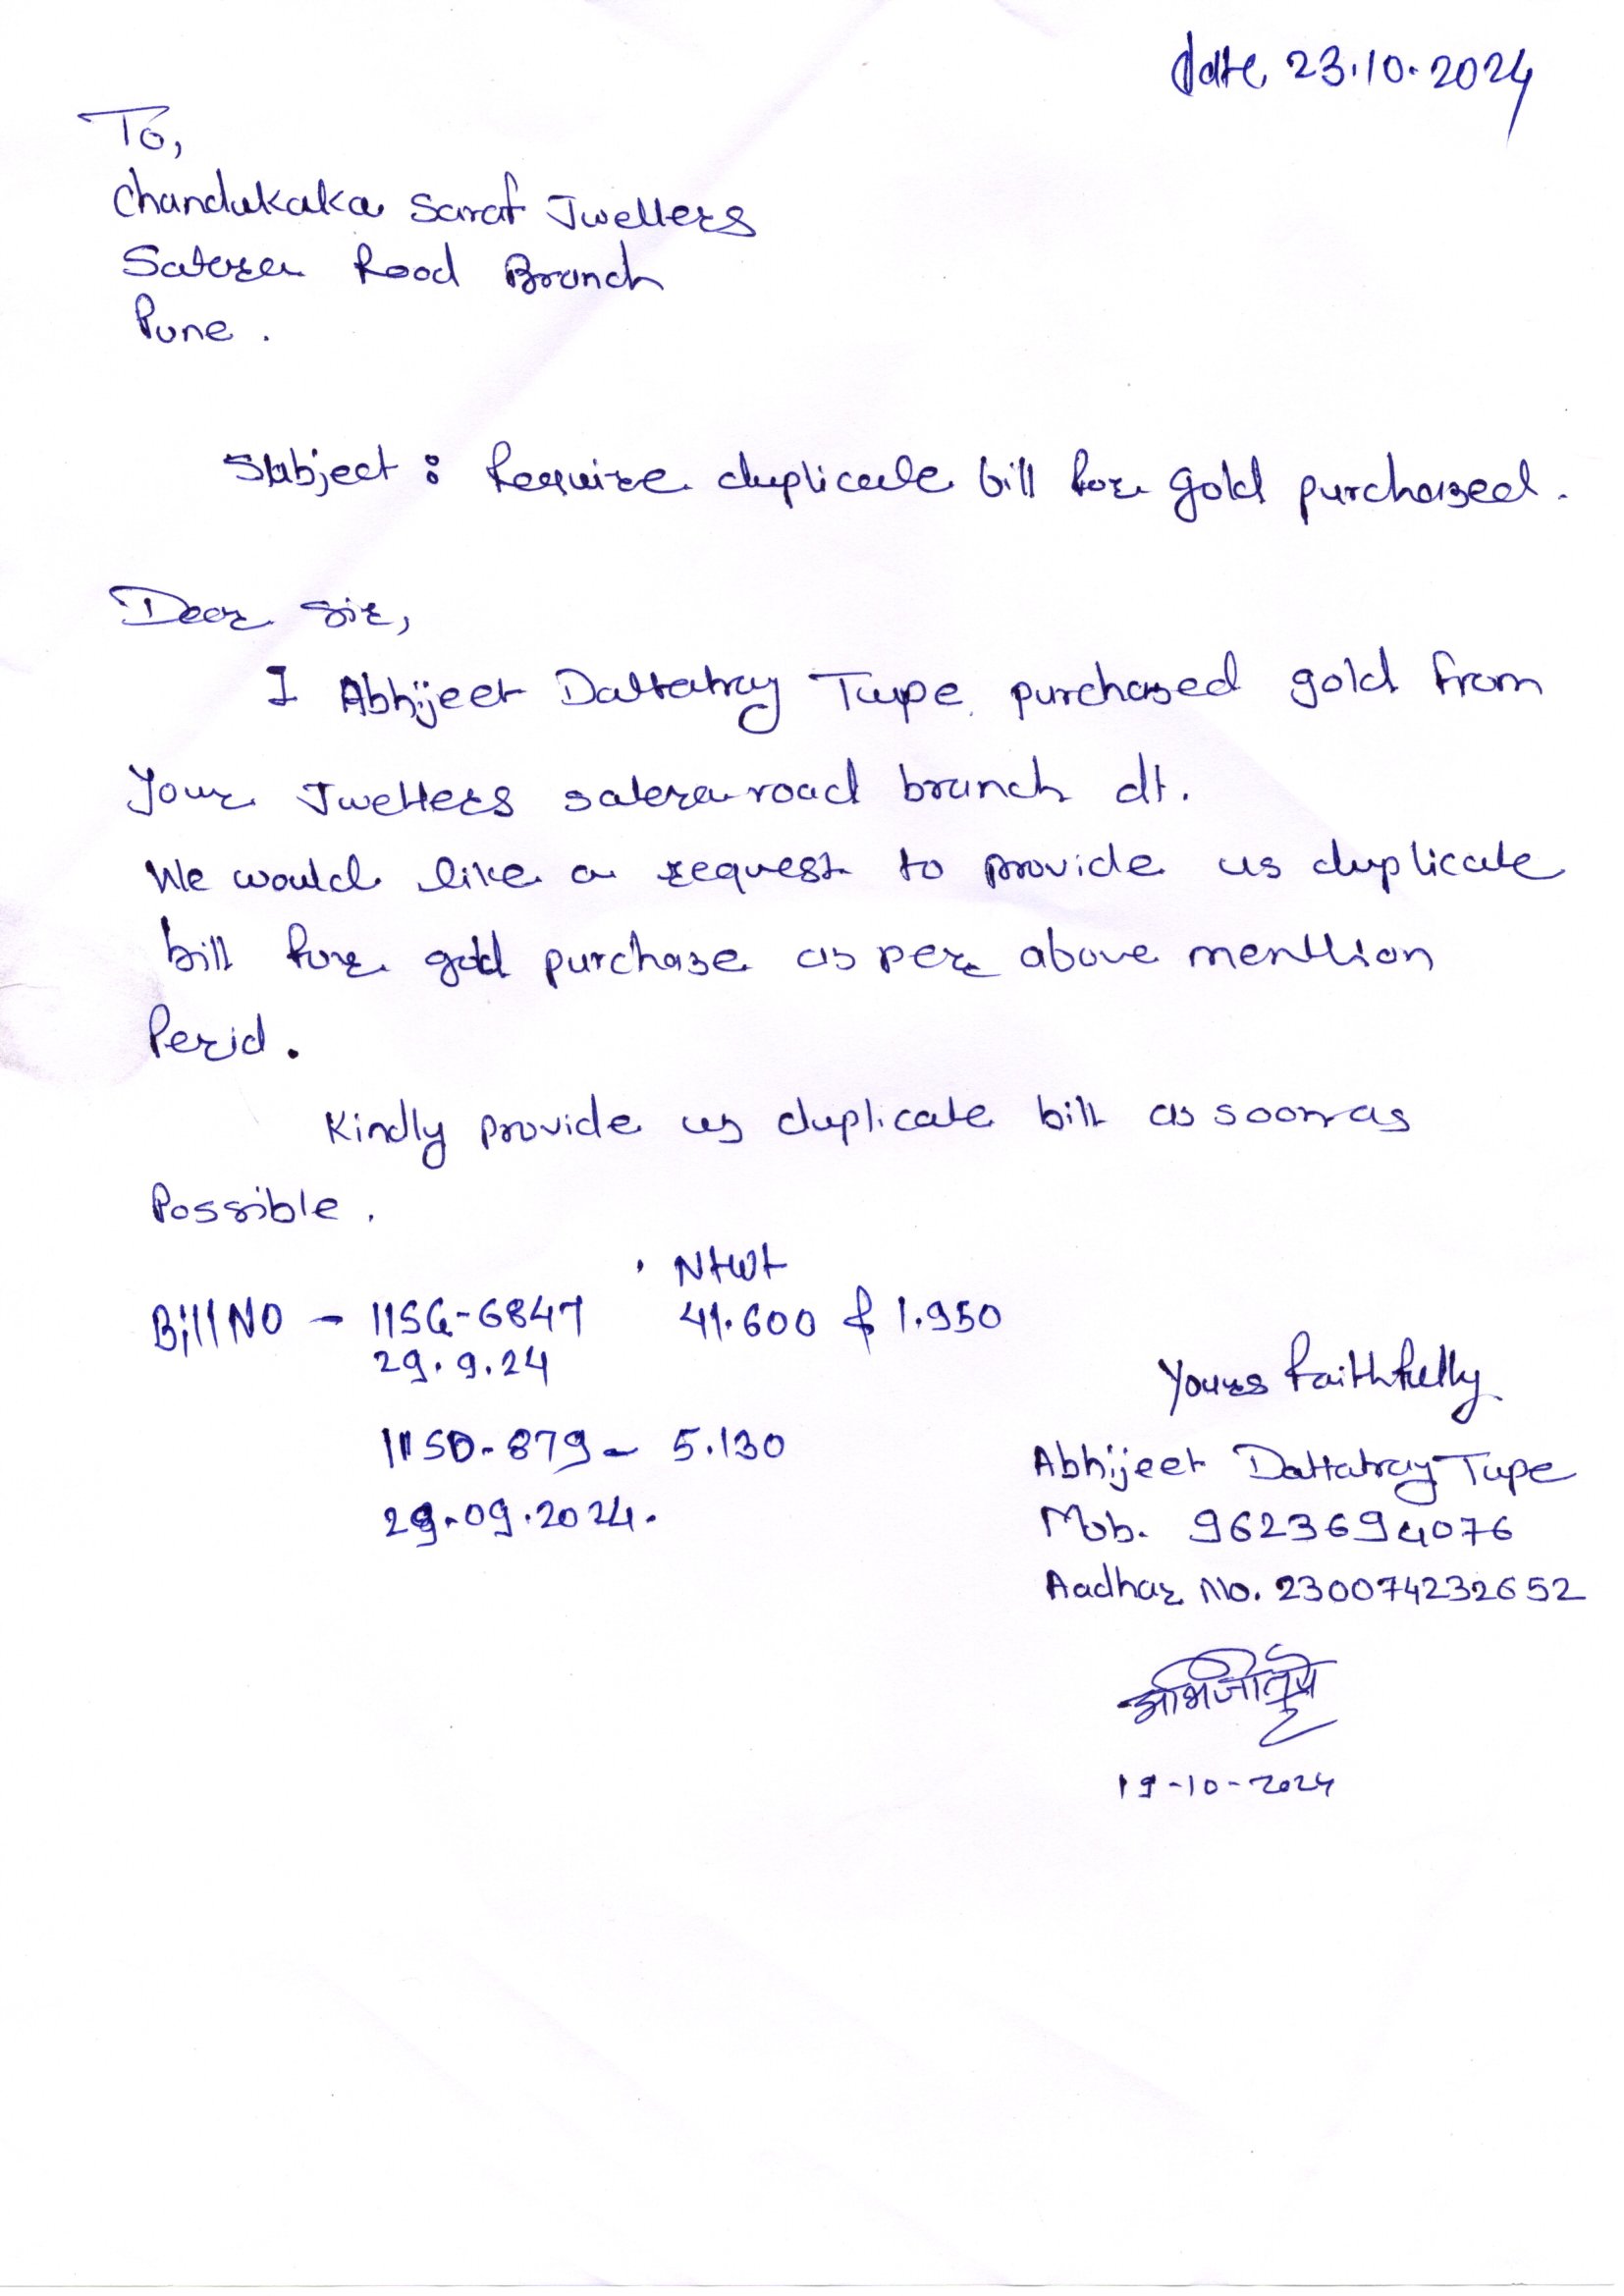 date 23.10.2024
To,
Chandukaka Saraf Jwellers
Satara Road Branch
Pune .
Subject : Require duplicate bill for gold purchased .
Dear Sir,
I Abhijeet Dattatray Tupe purchased gold from
Your Jwellers satara road branch dt.
We would like a request to provide us duplicate
bill for gold purchase as per above menttion
Perid .
Kindly provide us duplicate bill as soon as
Possible .
NtWt
Bill NO - 11SG-6847 41.600 & 1.950
29.9.24
11SD-879 - 5.130
29.09.2024.
Yours faithfully
Abhijeet Dattatray Tupe
Mob. 9623694076
Aadhar No. 230074232652
अभिजीत तुपे
19-10-2024